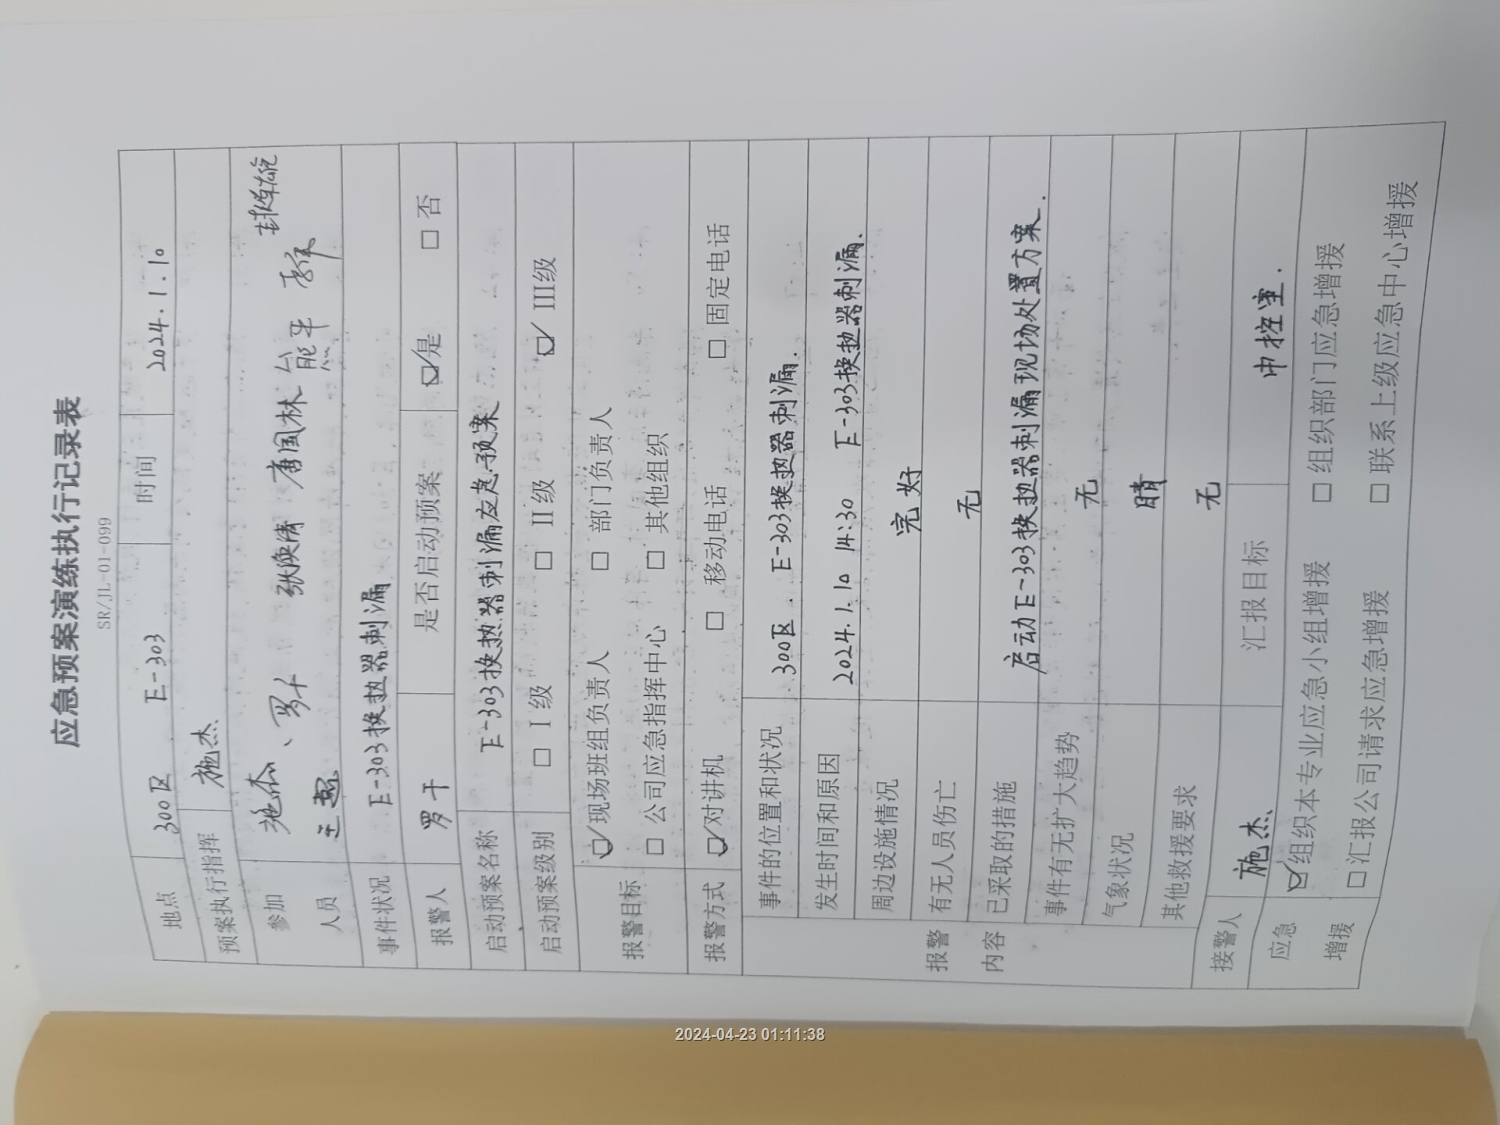 应急预案演练执行记录表
SR/JL-01-099
地点 300区 E-303 时间 2024.1.10
预案执行指挥 施杰
参加 施杰、罗干 张焕清 唐国林 熊平
人员 王
事件状况 E-303换热器刺漏
报警人 罗干 是否启动预案 ☑是 □否
启动预案名称 E-303换热器刺漏应急预案
启动预案级别 □ I级 □ II级 ☑ III级
报警目标 ☑现场班组负责人 □ 部门负责人
□ 公司应急指挥中心 □ 其他组织
报警方式 ☑对讲机 □ 移动电话 □ 固定电话
报警
内容
事件的位置和状况 300区. E-303换热器刺漏.
发生时间和原因 2024.1.10 14:30 E-303换热器刺漏.
周边设施情况 完好
有无人员伤亡 无
已采取的措施 启动E-303换热器刺漏现场处置方案.
事件有无扩大趋势 无
气象状况 晴
其他救援要求 无
接警人 施杰 汇报目标 中控室.
应急 ☑组织本专业应急小组增援 □ 组织部门应急增援
增援 □汇报公司请求应急增援 □ 联系上级应急中心增援
2024-04-23 01:11:38